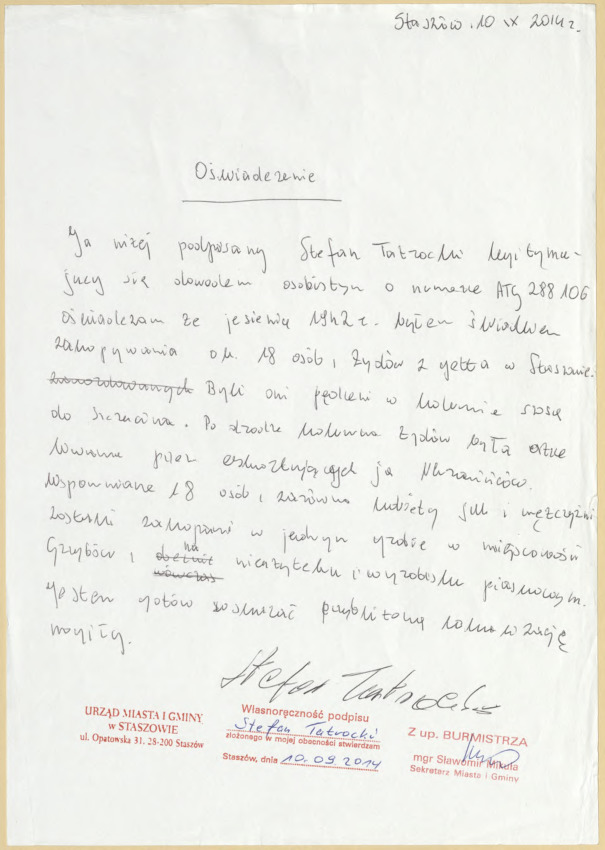 Staszów. 10 IX 2014 r.
Oświadczenie
Ja niżej podpisany Stefan Tatrocki legitymu-
jący się dowodem osobistym o numerze ATG 288 106
oświadczam że jesienią 1942 r. byłem świadkiem
zakopywania ok. 18 osób, Żydów z getta w Staszowie.
zamordowanych Byli oni pędzeni w kolumnie szosą
do Szczucina. Po drodze kolumna Żydów była ostrze
liwana przez eskortujących ją Ukraińców.
Wspomniane 18 osób, zarówno kobiety jak i mężczyźni
zostali zakopani w jednym grobie w miejscowości
Grzybów, na nieużytku i wyrobisku piaskowym.
wówczas
Jestem gotów wskazać przybliżoną lokalizację
mogiły.
Stefan Tatrocki
URZĄD MIASTA I GMINY
w STASZOWIE
ul. Opatowska 31, 28-200 Staszów
Własnoręczność podpisu
Stefan Tatrocki
złożonego w mojej obecności stwierdzam
Staszów, dnia 10.09.2014
Z up. BURMISTRZA
mgr Sławomir Mikula
Sekretarz Miasta i Gminy